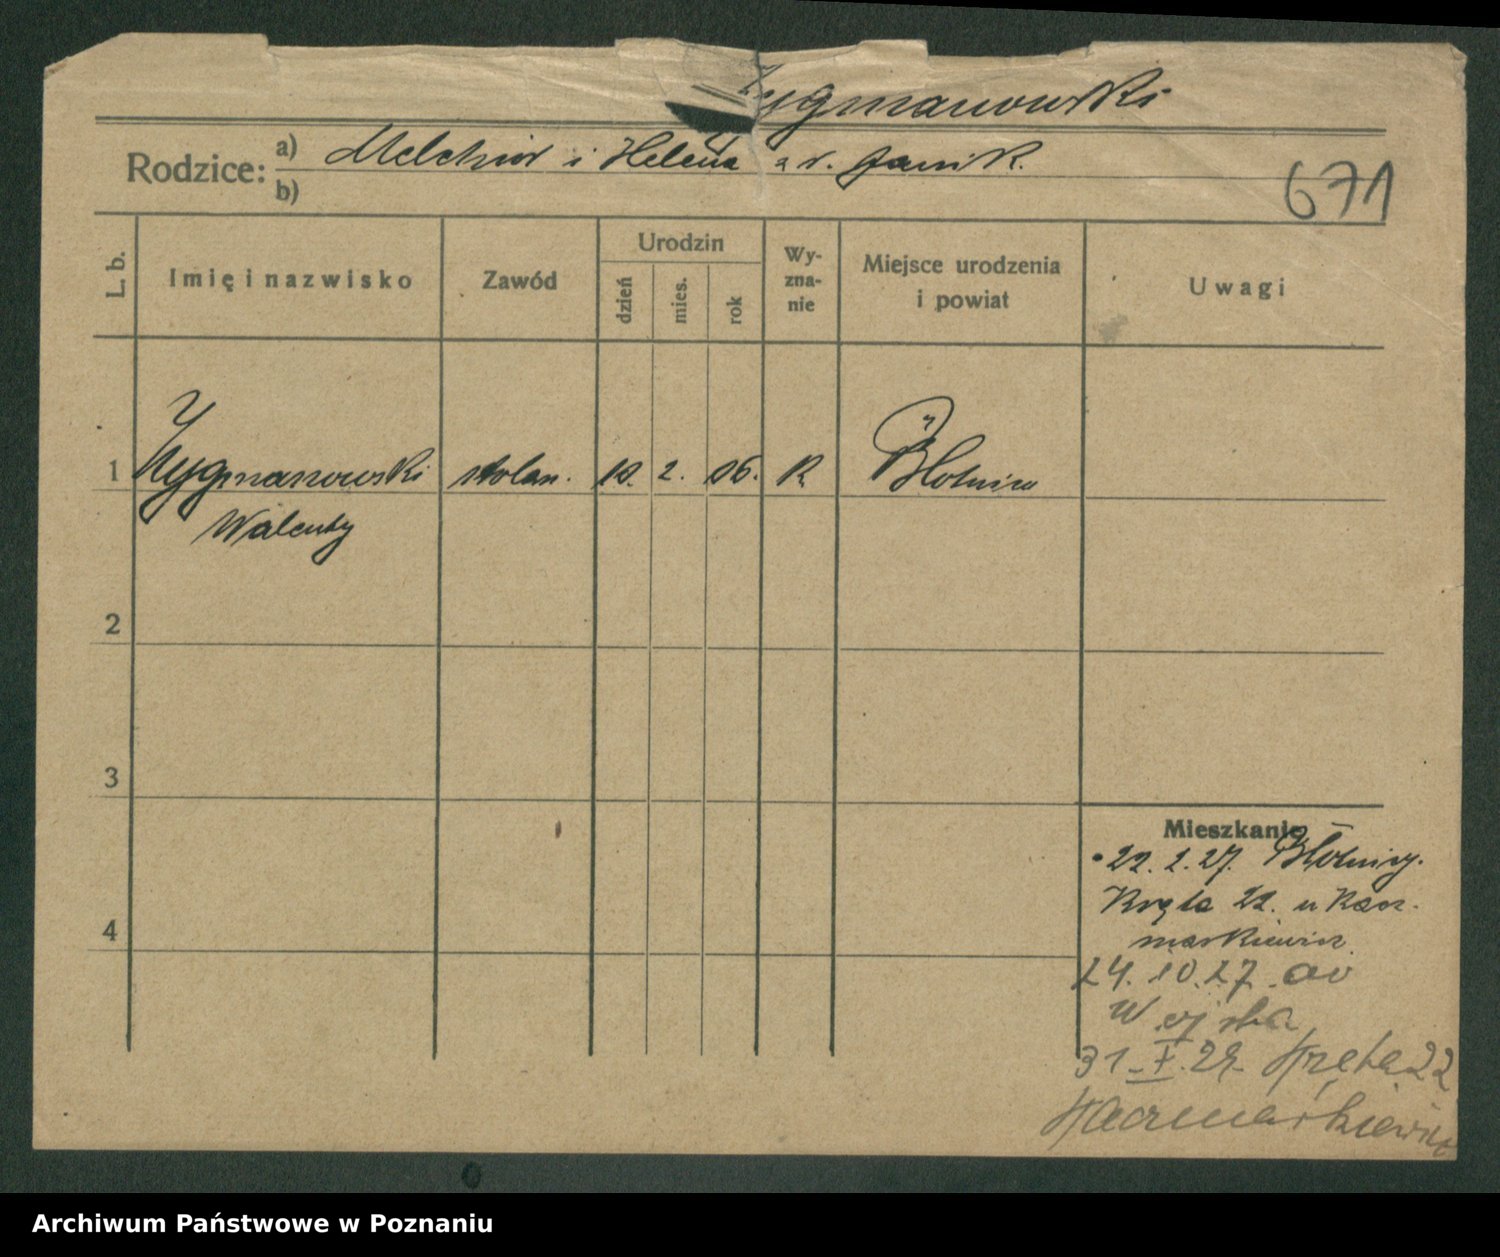 Zygmanowski
Rodzice: a) Melchior i Helena z d. Janik.
b)
671
L. b.
Imię i nazwisko
Zawód
Urodzin
dzień
mies.
rok
Wy-
zna-
nie
Miejsce urodzenia
i powiat
Uwagi
1 Zygmanowski stolarz. 2. 06. R
Walenty
2
3
4
Mieszkanie
22. 2. 27. Błotnicy.
Kręta 22. u Kacz-
markiewicz
24. 10. 27. do
Wojska
31. X. 29. Kręta 22
Kaczmarkiewicz
Archiwum Państwowe w Poznaniu